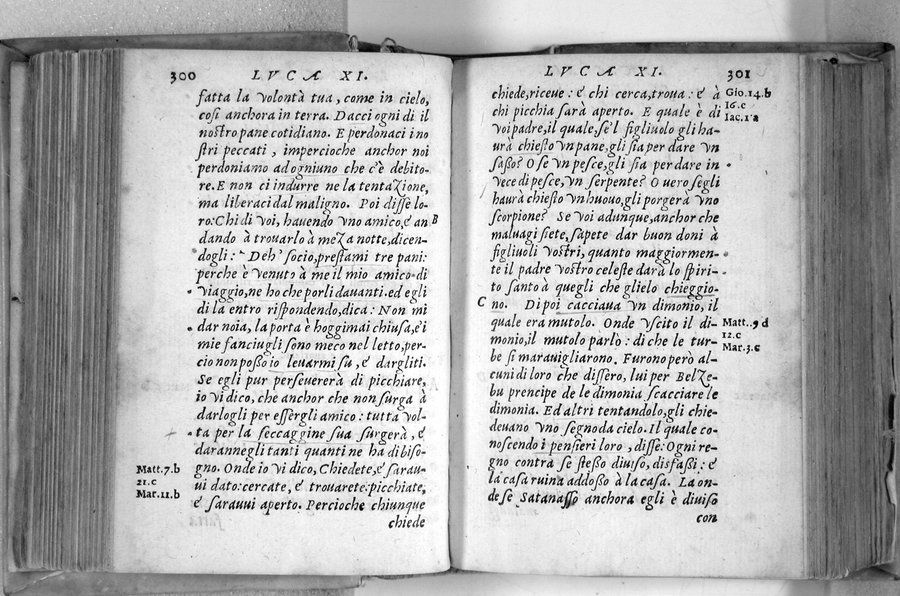 300 LVCAE XI.
fatta la volontà tua, come in cielo,
cosi anchora in terra. Dacci ogni dì il
nostro pane cotidiano. E perdonaci i no
stri peccati, impercioche anchor noi
perdoniamo ad ogniuno che c'è debito-
re. E non ci indurre ne la tentazione,
ma liberaci dal maligno. Poi disse lo-
ro: Chi di voi, havendo vno amico, é an
B
dando à trovarlo à meza notte, dicen-
dogli: Deh' socio, prestami tre pani:
perche è venuto à me il mio amico di
viaggio, ne ho che porli dauanti. ed egli
di la entro rispondendo, dica: Non mi
dar noia, la porta è hoggimai chiusa, é i
mie fanciugli sono meco nel letto, per-
cio non posso io levarmi su, é dargliti.
Se egli pur perseuererà di picchiare,
io vi dico, che anchor che non surga à
darlogli per essergli amico: tutta vol-
ta per la seccaggine sua surgerà, é
darannegli tanti quanti ne ha di biso-
gno. Onde io vi dico, Chiedete, é sarau-
ui dato: cercate, é trouarete: picchiate,
é sarauui aperto. Percioche chiunque
chiede
Matt.7.b
21.c
Mar.11.b
LVCAE XI. 301
chiede, riceue: é chi cerca, troua: é à
chi picchia sarà aperto. E quale è di
voi padre, il quale, se'l figliuolo gli ha-
urà chiesto vn pane, gli sia per dare vn
sasso? O se vn pesce, gli sia per dare in
vece di pesce, vn serpente? O uero se gli
haurà chiesto vn huouo, gli porgerà vno
scorpione? Se voi adunque, anchor che
maluagi siete, sapete dar buon doni à
figliuoli vostri, quanto maggiormen-
te il padre vostro celeste darà lo spiri-
to santo à quegli che glielo chieggio-
no. Di poi cacciaua vn dimonio, il
C
quale era mutolo. Onde vscito il di-
monio, il mutolo parlò: di che le tur-
be si marauigliarono. Furono però al-
cuni di loro che dissero, lui per Belze-
bu prencipe de le dimonia scacciare le
dimonia. Ed altri tentandolo, gli chie-
deuano vno segno da cielo. Il quale co-
noscendo i pensieri loro, disse: Ogni re-
gno contra se stesso diuiso, disfassi: é
la casa ruina addosso à la casa. La on-
de se Satanasso anchora egli è diuiso
con
Gio.14.b
16.e
Iac.1 a
Matt.9 d
12.c
Mar.3.c